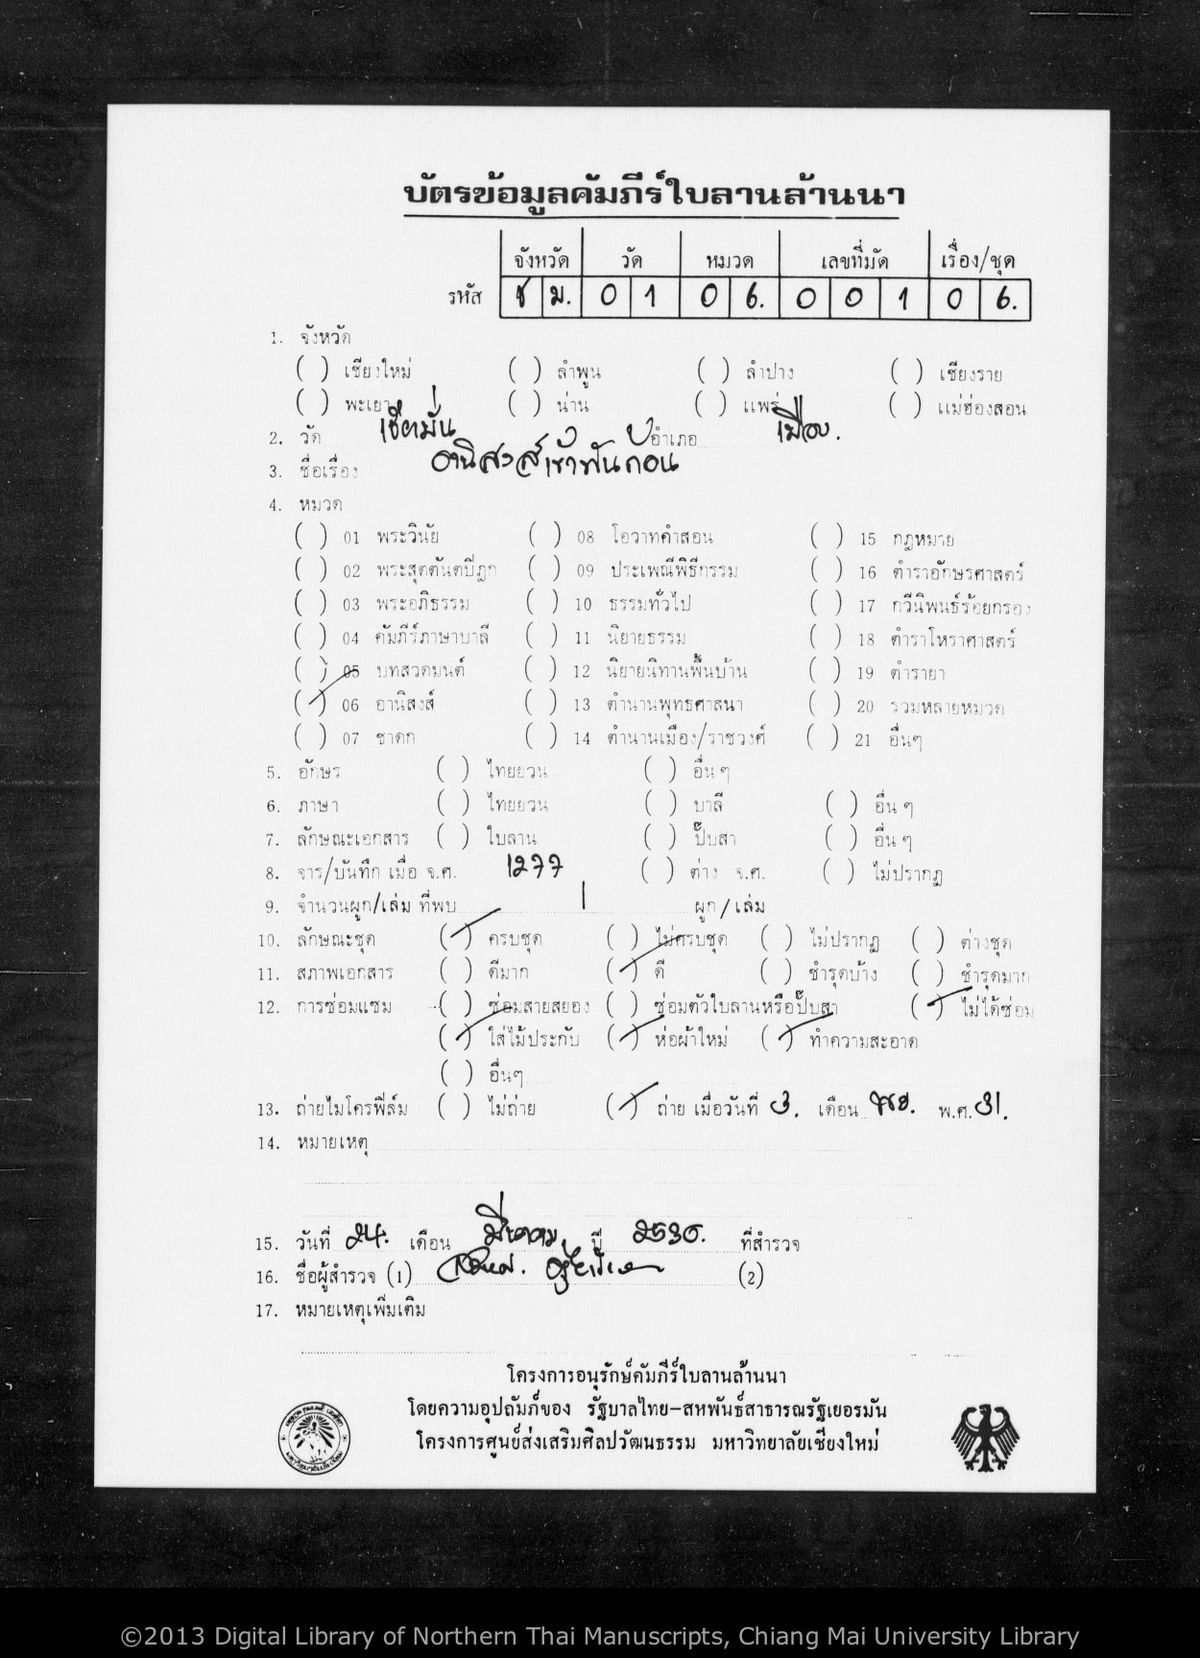 บัตรข้อมูลคัมภีร์ใบลานล้านนา
จังหวัด วัด หมวด เลขที่มัด เรื่อง/ชุด
รหัส ช ม. 0 1 0 6. 0 0 1 0 6.
1. จังหวัด
( ) เชียงใหม่ ( ) ลำพูน ( ) ลำปาง ( ) เชียงราย
( ) พะเยา ( ) น่าน ( ) แพร่ ( ) แม่ฮ่องสอน
2. วัด เชียงมั่น อำเภอ เมือง.
3. ชื่อเรื่อง อานิสงส์เข้าพันก้อน
4. หมวด
( ) 01 พระวินัย ( ) 08 โอวาทคำสอน ( ) 15 กฎหมาย
( ) 02 พระสุตตันตปิฎก ( ) 09 ประเพณีพิธีกรรม ( ) 16 ตำราอักษรศาสตร์
( ) 03 พระอภิธรรม ( ) 10 ธรรมทั่วไป ( ) 17 กวีนิพนธ์ร้อยกรอง
( ) 04 คัมภีร์ภาษาบาลี ( ) 11 นิยายธรรม ( ) 18 ตำราโหราศาสตร์
( ) 05 บทสวดมนต์ ( ) 12 นิยายนิทานพื้นบ้าน ( ) 19 ตำรายา
(/) 06 อานิสงส์ ( ) 13 ตำนานพุทธศาสนา ( ) 20 รวมหลายหมวด
( ) 07 ชาดก ( ) 14 ตำนานเมือง/ราชวงศ์ ( ) 21 อื่นๆ
5. อักษร ( ) ไทยยวน ( ) อื่นๆ
6. ภาษา ( ) ไทยยวน ( ) บาลี ( ) อื่นๆ
7. ลักษณะเอกสาร ( ) ใบลาน ( ) ปั๊บสา ( ) อื่นๆ
8. จาร/บันทึก เมื่อ จ.ศ. 1277 ( ) ต่าง จ.ศ. ( ) ไม่ปรากฏ
9. จำนวนผูก/เล่ม ที่พบ 1 ผูก/เล่ม
10. ลักษณะชุด (/) ครบชุด ( ) ไม่ครบชุด ( ) ไม่ปรากฏ ( ) ต่างชุด
11. สภาพเอกสาร ( ) ดีมาก (/) ดี ( ) ชำรุดบ้าง ( ) ชำรุดมาก
12. การซ่อมแซม ( ) ซ่อมสายสยอง ( ) ซ่อมตัวใบลานหรือปั๊บสา (/) ไม่ได้ซ่อม
(/) ใส่ไม้ประกับ (/) ห่อผ้าใหม่ (/) ทำความสะอาด
( ) อื่นๆ
13. ถ่ายไมโครฟิล์ม ( ) ไม่ถ่าย (/) ถ่าย เมื่อวันที่ 3. เดือน พย. พ.ศ. 31.
14. หมายเหตุ
15. วันที่ 24. เดือน มีนาคม ปี 2530. ที่สำรวจ
16. ชื่อผู้สำรวจ (1) (2)
17. หมายเหตุเพิ่มเติม
โครงการอนุรักษ์คัมภีร์ใบลานล้านนา
โดยความอุปถัมภ์ของ รัฐบาลไทย-สหพันธ์สาธารณรัฐเยอรมัน
โครงการศูนย์ส่งเสริมศิลปวัฒนธรรม มหาวิทยาลัยเชียงใหม่
©2013 Digital Library of Northern Thai Manuscripts, Chiang Mai University Library